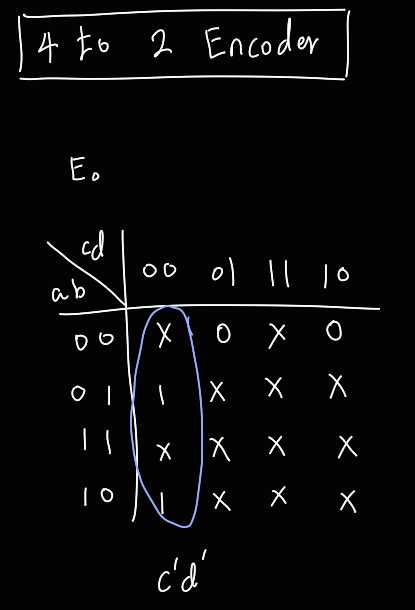 4 to 2 Encoder
E₀
cd
ab
00 01 11 10
00 X 0 X 0
01 1 X X X
11 X X X X
10 1 X X X
c'd'